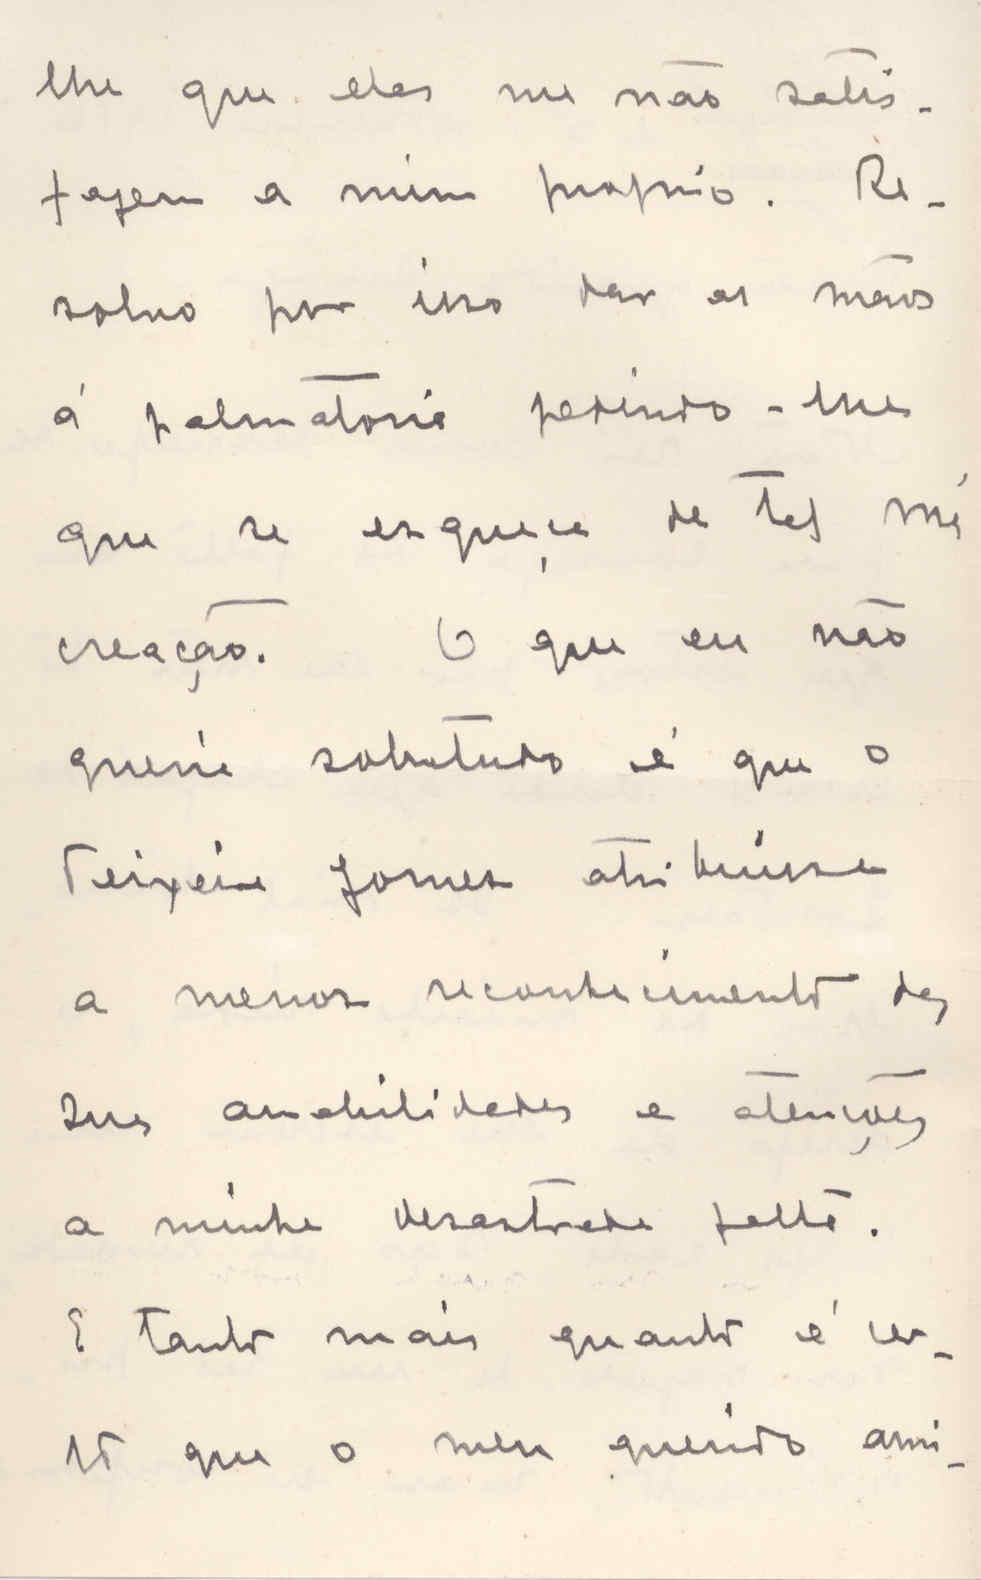 lhe que elas me não satis-
fazem a mim proprio. Re-
solvo por isso dar as mãos
á palmatoria pedindo-lhe
que se esqueça de tal má
creação. O que eu não
queria sobretudo é que o
Teixeira Gomes atribuisse
a menos reconhecimento das
suas amabilidades e atenções
a minha desastrada falta.
E tanto mais quanto é cer-
to que o meu querido ami-